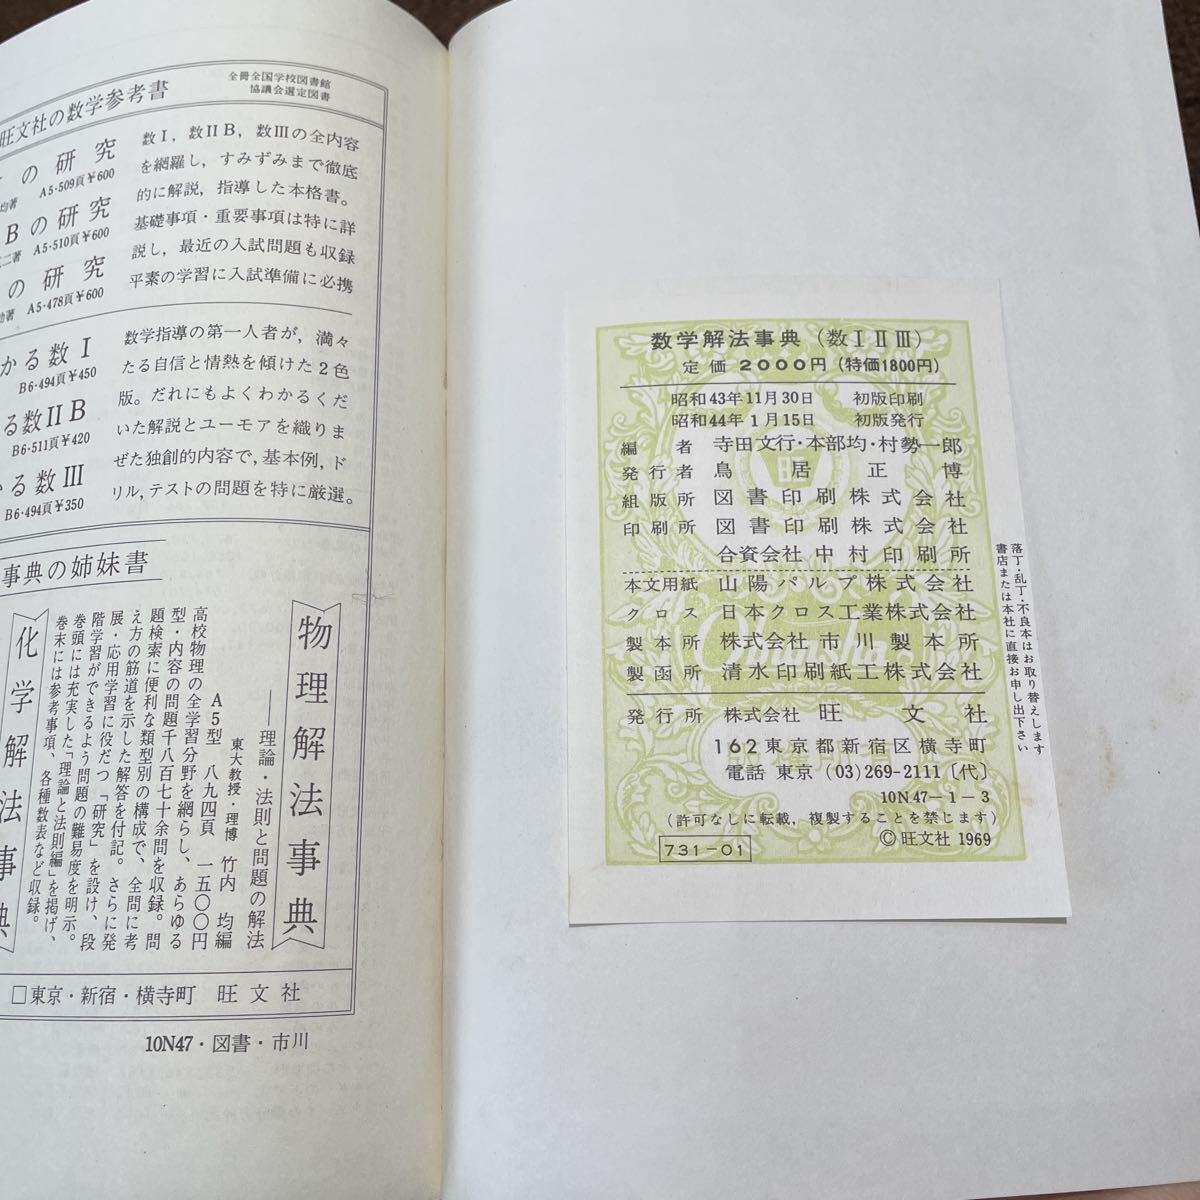 旺文社の数学参考書
全冊全国学校図書館
協議会選定図書
の研究
均著 A5・509頁¥600
Bの研究
二著 A5・510頁¥600
の研究
著 A5・478頁¥600
数Ⅰ，数ⅡB，数Ⅲの全内容
を網羅し，すみずみまで徹底
的に解説，指導した本格書。
基礎事項・重要事項は特に詳
説し，最近の入試問題も収録
平素の学習に入試準備に必携
かる数Ⅰ
B6・494頁¥450
る数ⅡB
B6・511頁¥420
かる数Ⅲ
B6・494頁¥350
数学指導の第一人者が，満々
たる自信と情熱を傾けた2色
版。だれにもよくわかるくだ
いた解説とユーモアを織りま
ぜた独創的内容で，基本例，ド
リル，テストの問題を特に厳選。
事典の姉妹書
物理解法事典
――理論・法則と問題の解法
東大教授・理博 竹内 均編
A5型 八九四頁 一五〇〇円
高校物理の全学習分野を網らし、あらゆる
型・内容の問題千八百七十余問を収録。問
題検索に便利な類型別の構成で、全問に考
え方の筋道を示した解答を付記。さらに発
展・応用学習に役だつ「研究」を設け、段
階学習ができるよう問題の難易度を明示。
巻頭には充実した「理論と法則編」を掲げ、
巻末には参考事項、各種数表など収録。
化学解法事典
□東京・新宿・横寺町 旺文社
10N47・図書・市川
数学解法事典（数ⅠⅡⅢ）
定価 2000円（特価1800円）
昭和43年11月30日 初版印刷
昭和44年1月15日 初版発行
編者 寺田文行・本部均・村勢一郎
発行者 鳥居正博
組版所 図書印刷株式会社
印刷所 図書印刷株式会社
合資会社 中村印刷所
本文用紙 山陽パルプ株式会社
クロス 日本クロス工業株式会社
製本所 株式会社市川製本所
製函所 清水印刷紙工株式会社
発行所 株式会社 旺文社
162 東京都新宿区横寺町
電話 東京 (03) 269-2111〔代〕
10N.47-1-3
（許可なしに転載，複製することを禁じます）
731-01
Ⓒ旺文社 1969
落丁・乱丁・不良本はお取り替えします
書店または本社に直接お申し出下さい